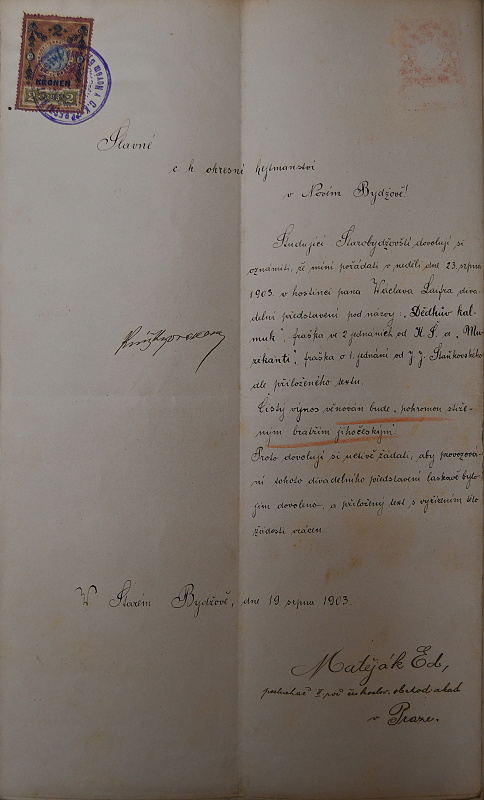 2
KRONEN
Slavné
c. k. okresní hejtmanství
v Novém Bydžově!
Studující Starobydžovští dovolují si
oznámiti, že míní pořádati v neděli dne 23. srpna
1903 v hostinci pana Václava Laufra diva-
delní představení pod názvy: „Dědkův kal-
muk", fraška ve 2 jednáních od K. Š. a „Mu-
zikanti", fraška o 1. jednání od J. J. Staňkovského
dle přiloženého textu.
Čistý výnos věnován bude, pohromou stíže-
ným bratřím jihočeským.
Proto dovolují si uctivě žádati, aby provozová-
ní tohoto divadelního představení laskavě bylo
jim dovoleno, a přiložený text s vyřízením této
žádosti vrácen.
V Starém Bydžově, dne 19. srpna 1903.
Matěják Ed,
posluchač II. roč. českoslov. obchod. akad.
v Praze.